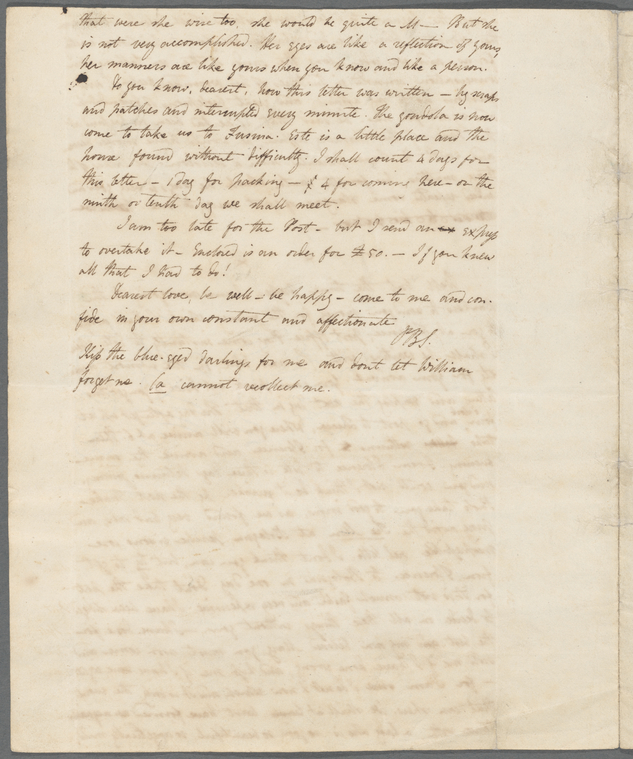 that were she wise too, she would be quite a M— But she
is not very accomplished. Her eyes are like a reflection of yours,
her manners are like yours when you know and like a person.
Do you know, dearest, how this letter was written — by scraps
and patches and interrupted every minute. The gondola is now
come to take us to Fusina. Este is a little place and the
house found without difficulty. I shall count 4 days for
this letter — 1 day for packing — 4 for coming here — on the
ninth or tenth day we shall meet.
I am too late for the Post — but I send an express
to overtake it — Enclosed is an order for £50. — If you knew
all that I had to do!
Dearest love, be well — be happy — come to me and con-
fide in your own constant and affectionate
PBS.
Kiss the blue-eyed darlings for me and dont let William
forget me. Ca cannot recollect me.